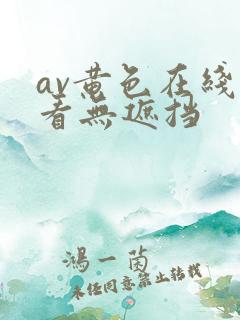 av黄色在线
看無遮挡
鴻一茵
未经同意禁止转载